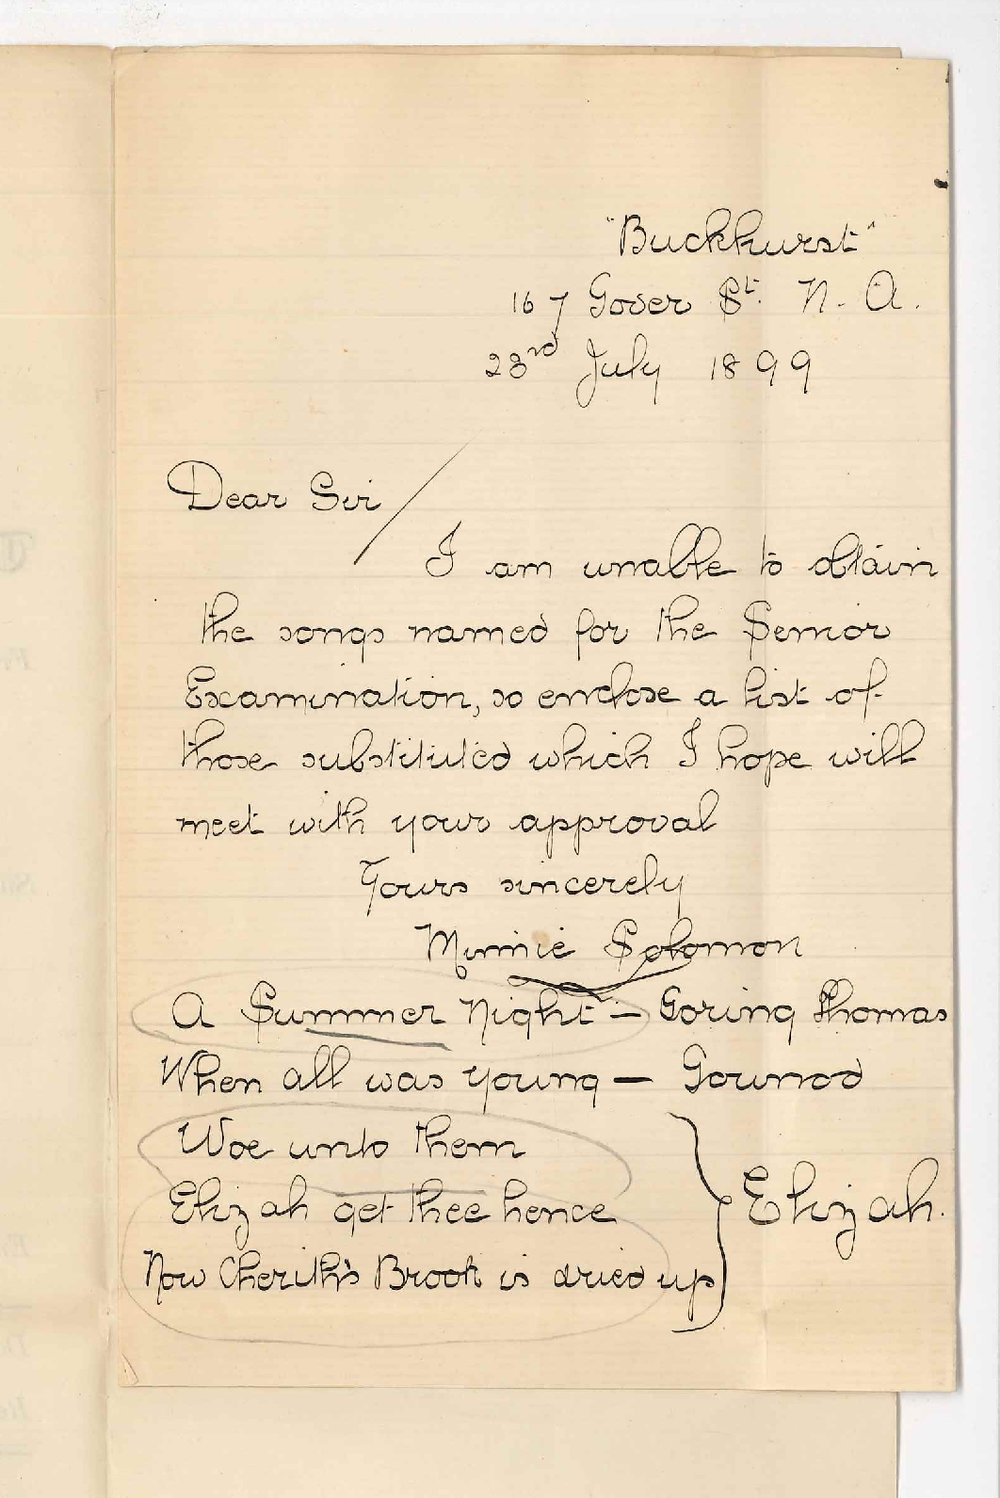 "Buckhurst"
167 Gover St. N. A.
23rd July 1899
Dear Sir/
I am unable to obtain
the songs named for the Senior
Examination, so enclose a list of
those substituted which I hope will
meet with your approval
Yours sincerely
Minnie Solomon
A Summer Night – Goring Thomas
When all was young – Gounod
Woe unto them
Elijah get thee hence } Elijah.
Now Cherith's Brook is dried up